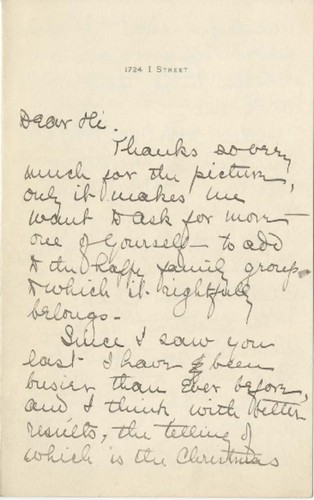 1724 I STREET
Dear Hi.
Thanks so very
much for the picture,
only it makes me
want to ask for more—
one of yourself— to add
to the happy family group
to which it rightfully
belongs—
Since I saw you
last I have been
busier than ever before,
and I think with better
results, the telling of
which is the Christmas